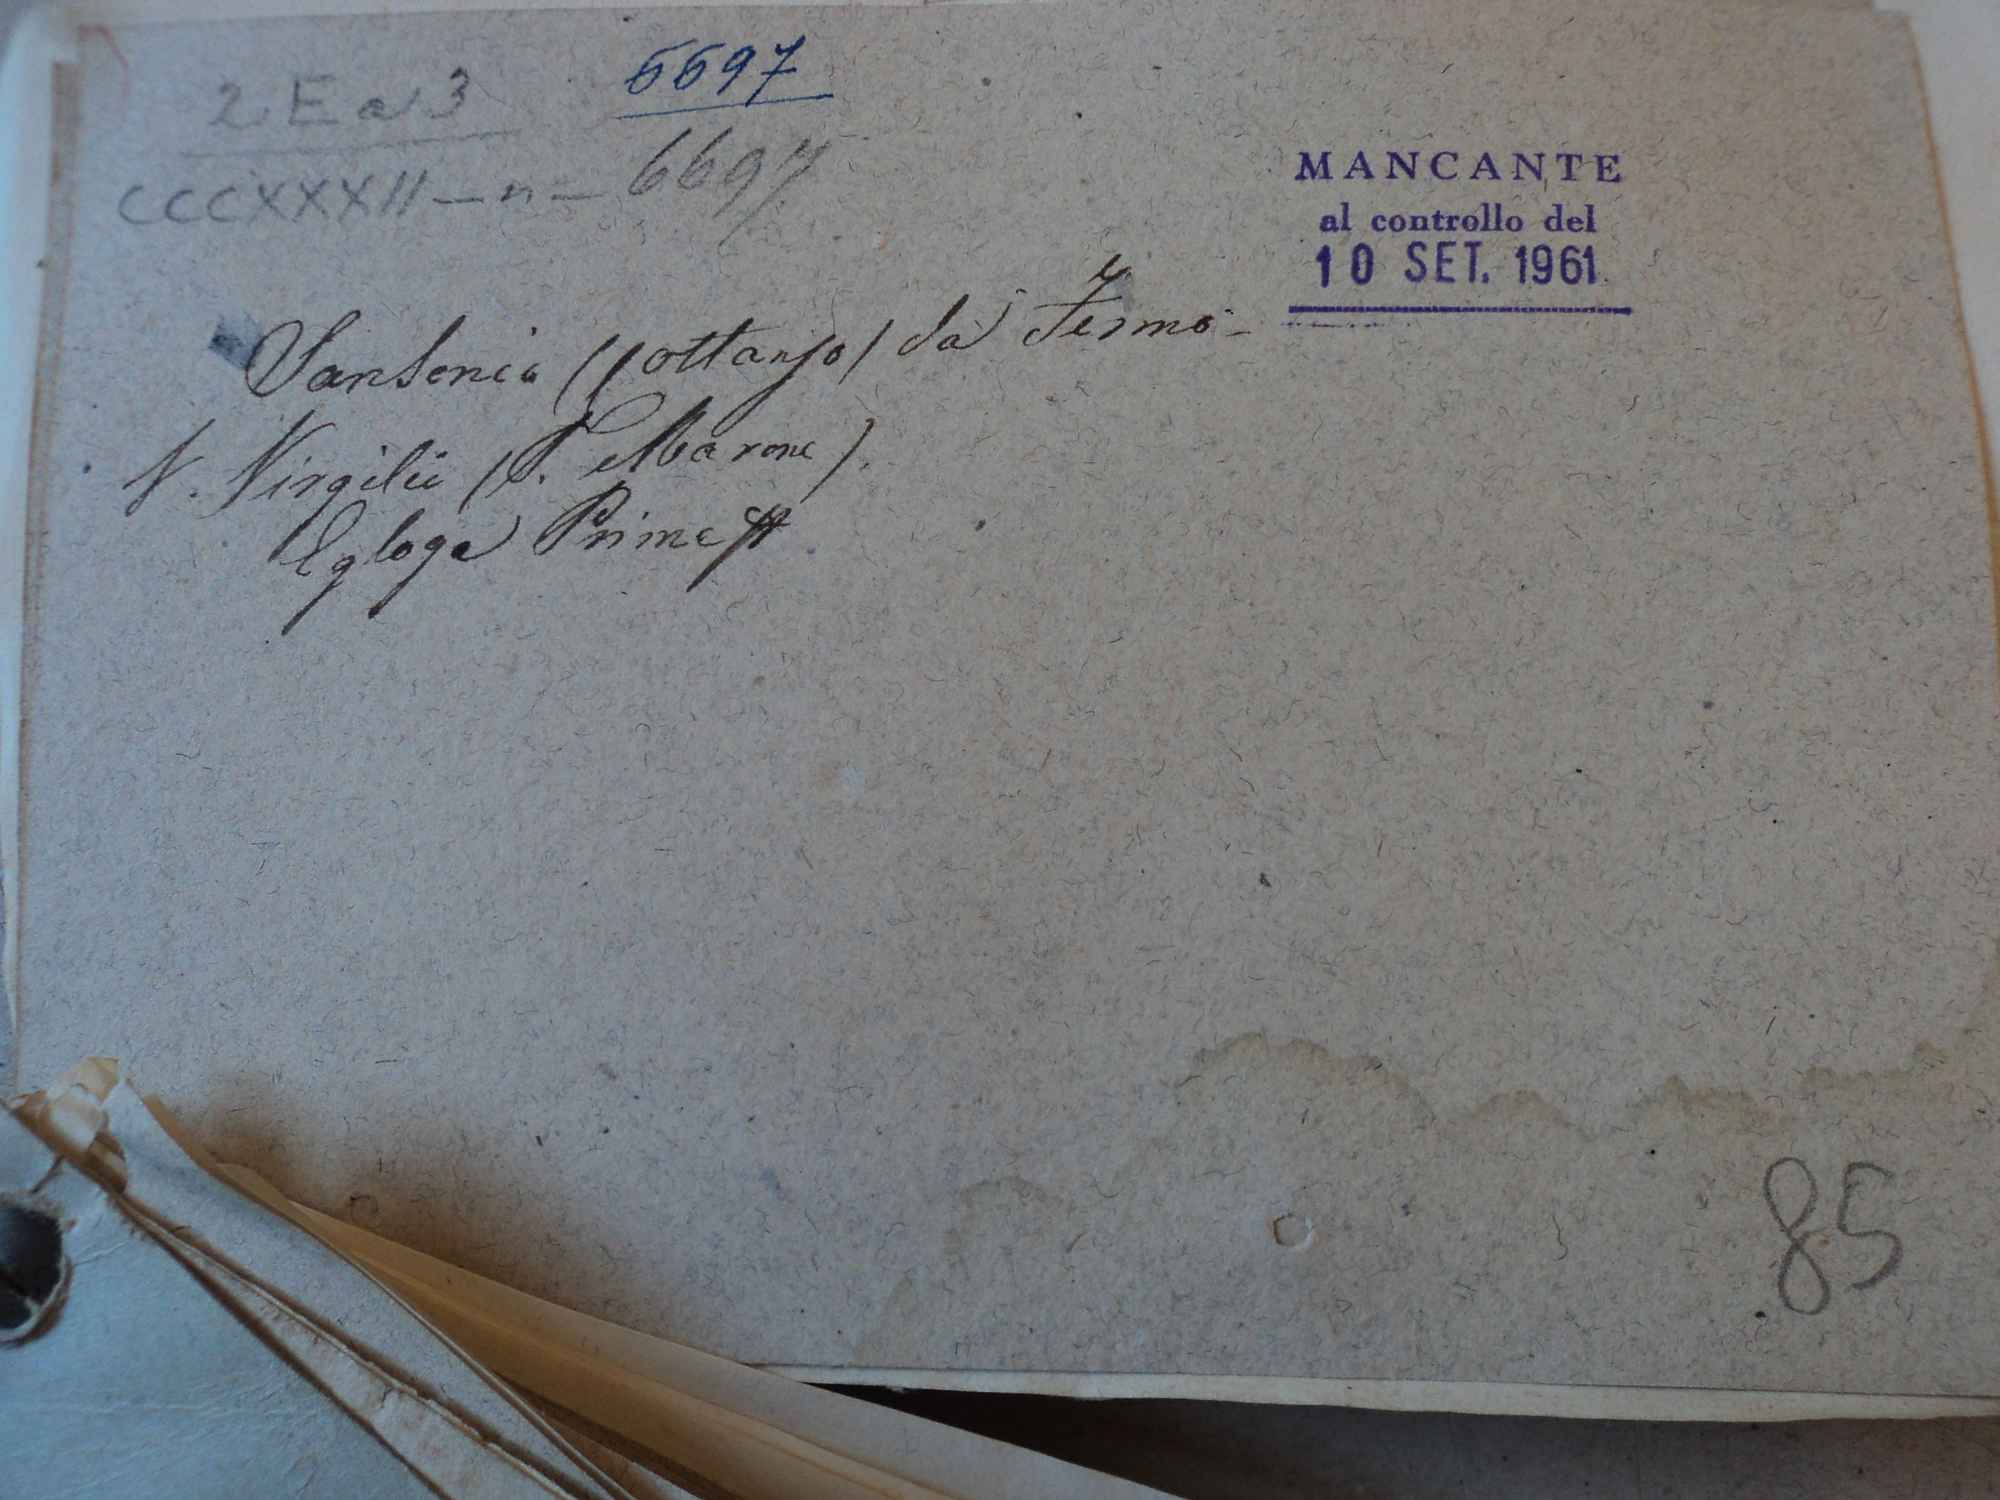 2 E a 3
6697
CCCXXXII - n - 6697
MANCANTE
al controllo del
10 SET. 1961
da Fermo -
V. Virgilio (P. Marone).
Egloga Prima
85